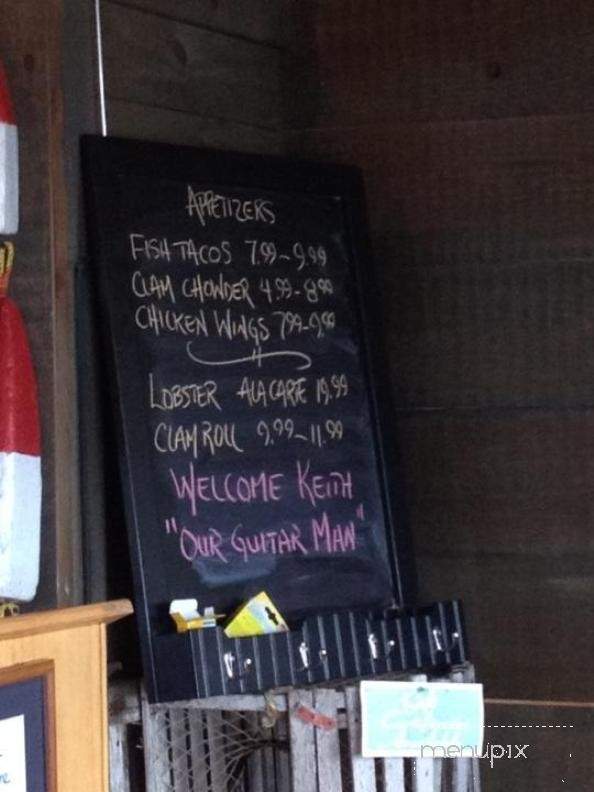 APPETIZERS
FISH TACOS 7.99-9.99
CLAM CHOWDER 4.99-8.99
CHICKEN WINGS 7.99-9.99
LOBSTER ALA CARTE 19.99
CLAM ROLL 9.99-11.99
WELCOME KEITH
"OUR GUITAR MAN"
menupix